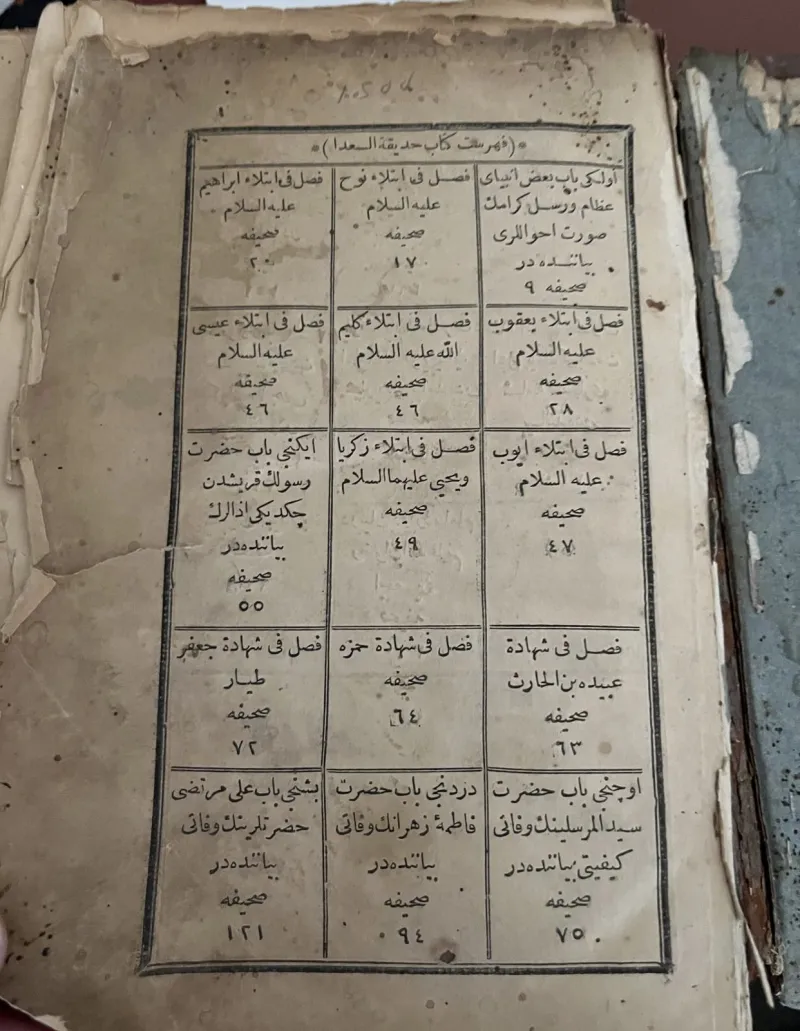 (فهرست كتاب حديقة السعدا)
اولكى باب بعض انبياى
عظام ورسل كرامك
صورت احواللرى
بياننده در
صحيفه ٩
فصل فى ابتلاء نوح
عليه السلام
صحيفه
١٧
فصل فى ابتلاء ابراهيم
عليه السلام
صحيفه
٢٠
فصل فى ابتلاء يعقوب
عليه السلام
صحيفه
٢٨
فصل فى ابتلاء كليم
الله عليه السلام
صحيفه
٤٦
فصل فى ابتلاء عيسى
عليه السلام
صحيفه
٤٦
فصل فى ابتلاء ايوب
عليه السلام
صحيفه
٤٧
فصل فى ابتلاء زكريا
ويحيى عليهما السلام
صحيفه
٤٩
ايكنجى باب حضرت
رسولك قريشدن
چكديكى اذالرك
بياننده در
صحيفه
٥٥
فصل فى شهادة
عبيده بن الحارث
صحيفه
٦٣
فصل فى شهادة حمزه
صحيفه
٦٤
فصل فى شهادة جعفر
طيار
صحيفه
٧٢
اوچنجى باب حضرت
سيد المرسلينك وفاتى
كيفيتى بياننده در
صحيفه
٧٥
دردنجى باب حضرت
فاطمۀ زهرانك وفاتى
بياننده در
صحيفه
٩٤
بشنجى باب على مرتضى
حضرتلرينك وفاتى
بياننده در
صحيفه
١٢١